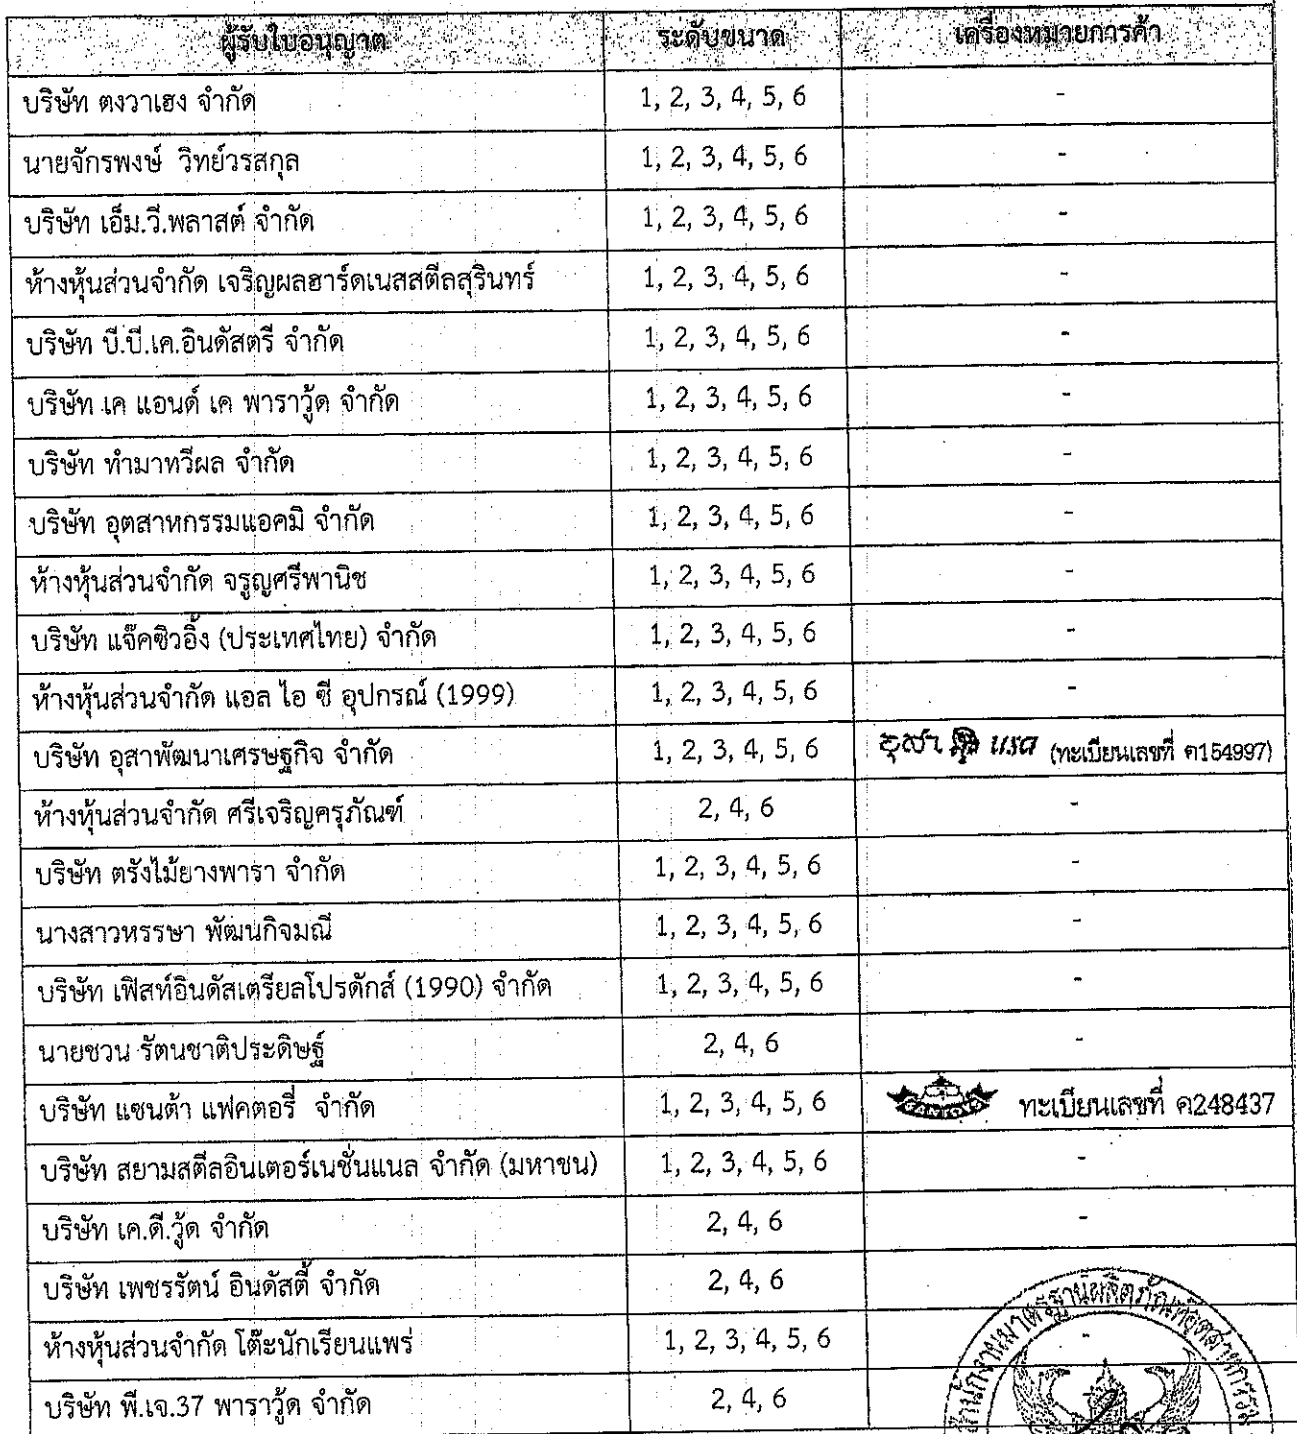 ผู้รับใบอนุญาต ระดับขนาด เครื่องหมายการค้า
บริษัท ตงวาเฮง จำกัด 1, 2, 3, 4, 5, 6 -
นายจักรพงษ์ วิทย์วรสกุล 1, 2, 3, 4, 5, 6 -
บริษัท เอ็ม.วี.พลาสต์ จำกัด 1, 2, 3, 4, 5, 6 -
ห้างหุ้นส่วนจำกัด เจริญผลฮาร์ดเนสสตีลสุรินทร์ 1, 2, 3, 4, 5, 6 -
บริษัท บี.บี.เค.อินดัสตรี จำกัด 1, 2, 3, 4, 5, 6 -
บริษัท เค แอนด์ เค พาราวู้ด จำกัด 1, 2, 3, 4, 5, 6 -
บริษัท ทำมาทวีผล จำกัด 1, 2, 3, 4, 5, 6 -
บริษัท อุตสาหกรรมแอคมิ จำกัด 1, 2, 3, 4, 5, 6 -
ห้างหุ้นส่วนจำกัด จรูญศรีพานิช 1, 2, 3, 4, 5, 6 -
บริษัท แจ๊คซิวอิ้ง (ประเทศไทย) จำกัด 1, 2, 3, 4, 5, 6 -
ห้างหุ้นส่วนจำกัด แอล ไอ ซี อุปกรณ์ (1999) 1, 2, 3, 4, 5, 6 -
บริษัท อุสาพัฒนาเศรษฐกิจ จำกัด 1, 2, 3, 4, 5, 6 อุสา แรด (ทะเบียนเลขที่ ค154997)
ห้างหุ้นส่วนจำกัด ศรีเจริญครุภัณฑ์ 2, 4, 6 -
บริษัท ตรังไม้ยางพารา จำกัด 1, 2, 3, 4, 5, 6 -
นางสาวหรรษา พัฒนกิจมณี 1, 2, 3, 4, 5, 6 -
บริษัท เฟิสท์อินดัสเตรียลโปรดักส์ (1990) จำกัด 1, 2, 3, 4, 5, 6 -
นายชวน รัตนชาติประดิษฐ์ 2, 4, 6 -
บริษัท แซนต้า แฟคตอรี่ จำกัด 1, 2, 3, 4, 5, 6 ทะเบียนเลขที่ ค248437
บริษัท สยามสตีลอินเตอร์เนชั่นแนล จำกัด (มหาชน) 1, 2, 3, 4, 5, 6 -
บริษัท เค.ดี.วู้ด จำกัด 2, 4, 6 -
บริษัท เพชรรัตน์ อินดัสตี้ จำกัด 2, 4, 6
ห้างหุ้นส่วนจำกัด โต๊ะนักเรียนแพร่ 1, 2, 3, 4, 5, 6 -
บริษัท พี.เจ.37 พาราวู้ด จำกัด 2, 4, 6
สำนักงานมาตรฐานผลิตภัณฑ์อุตสาหกรรม